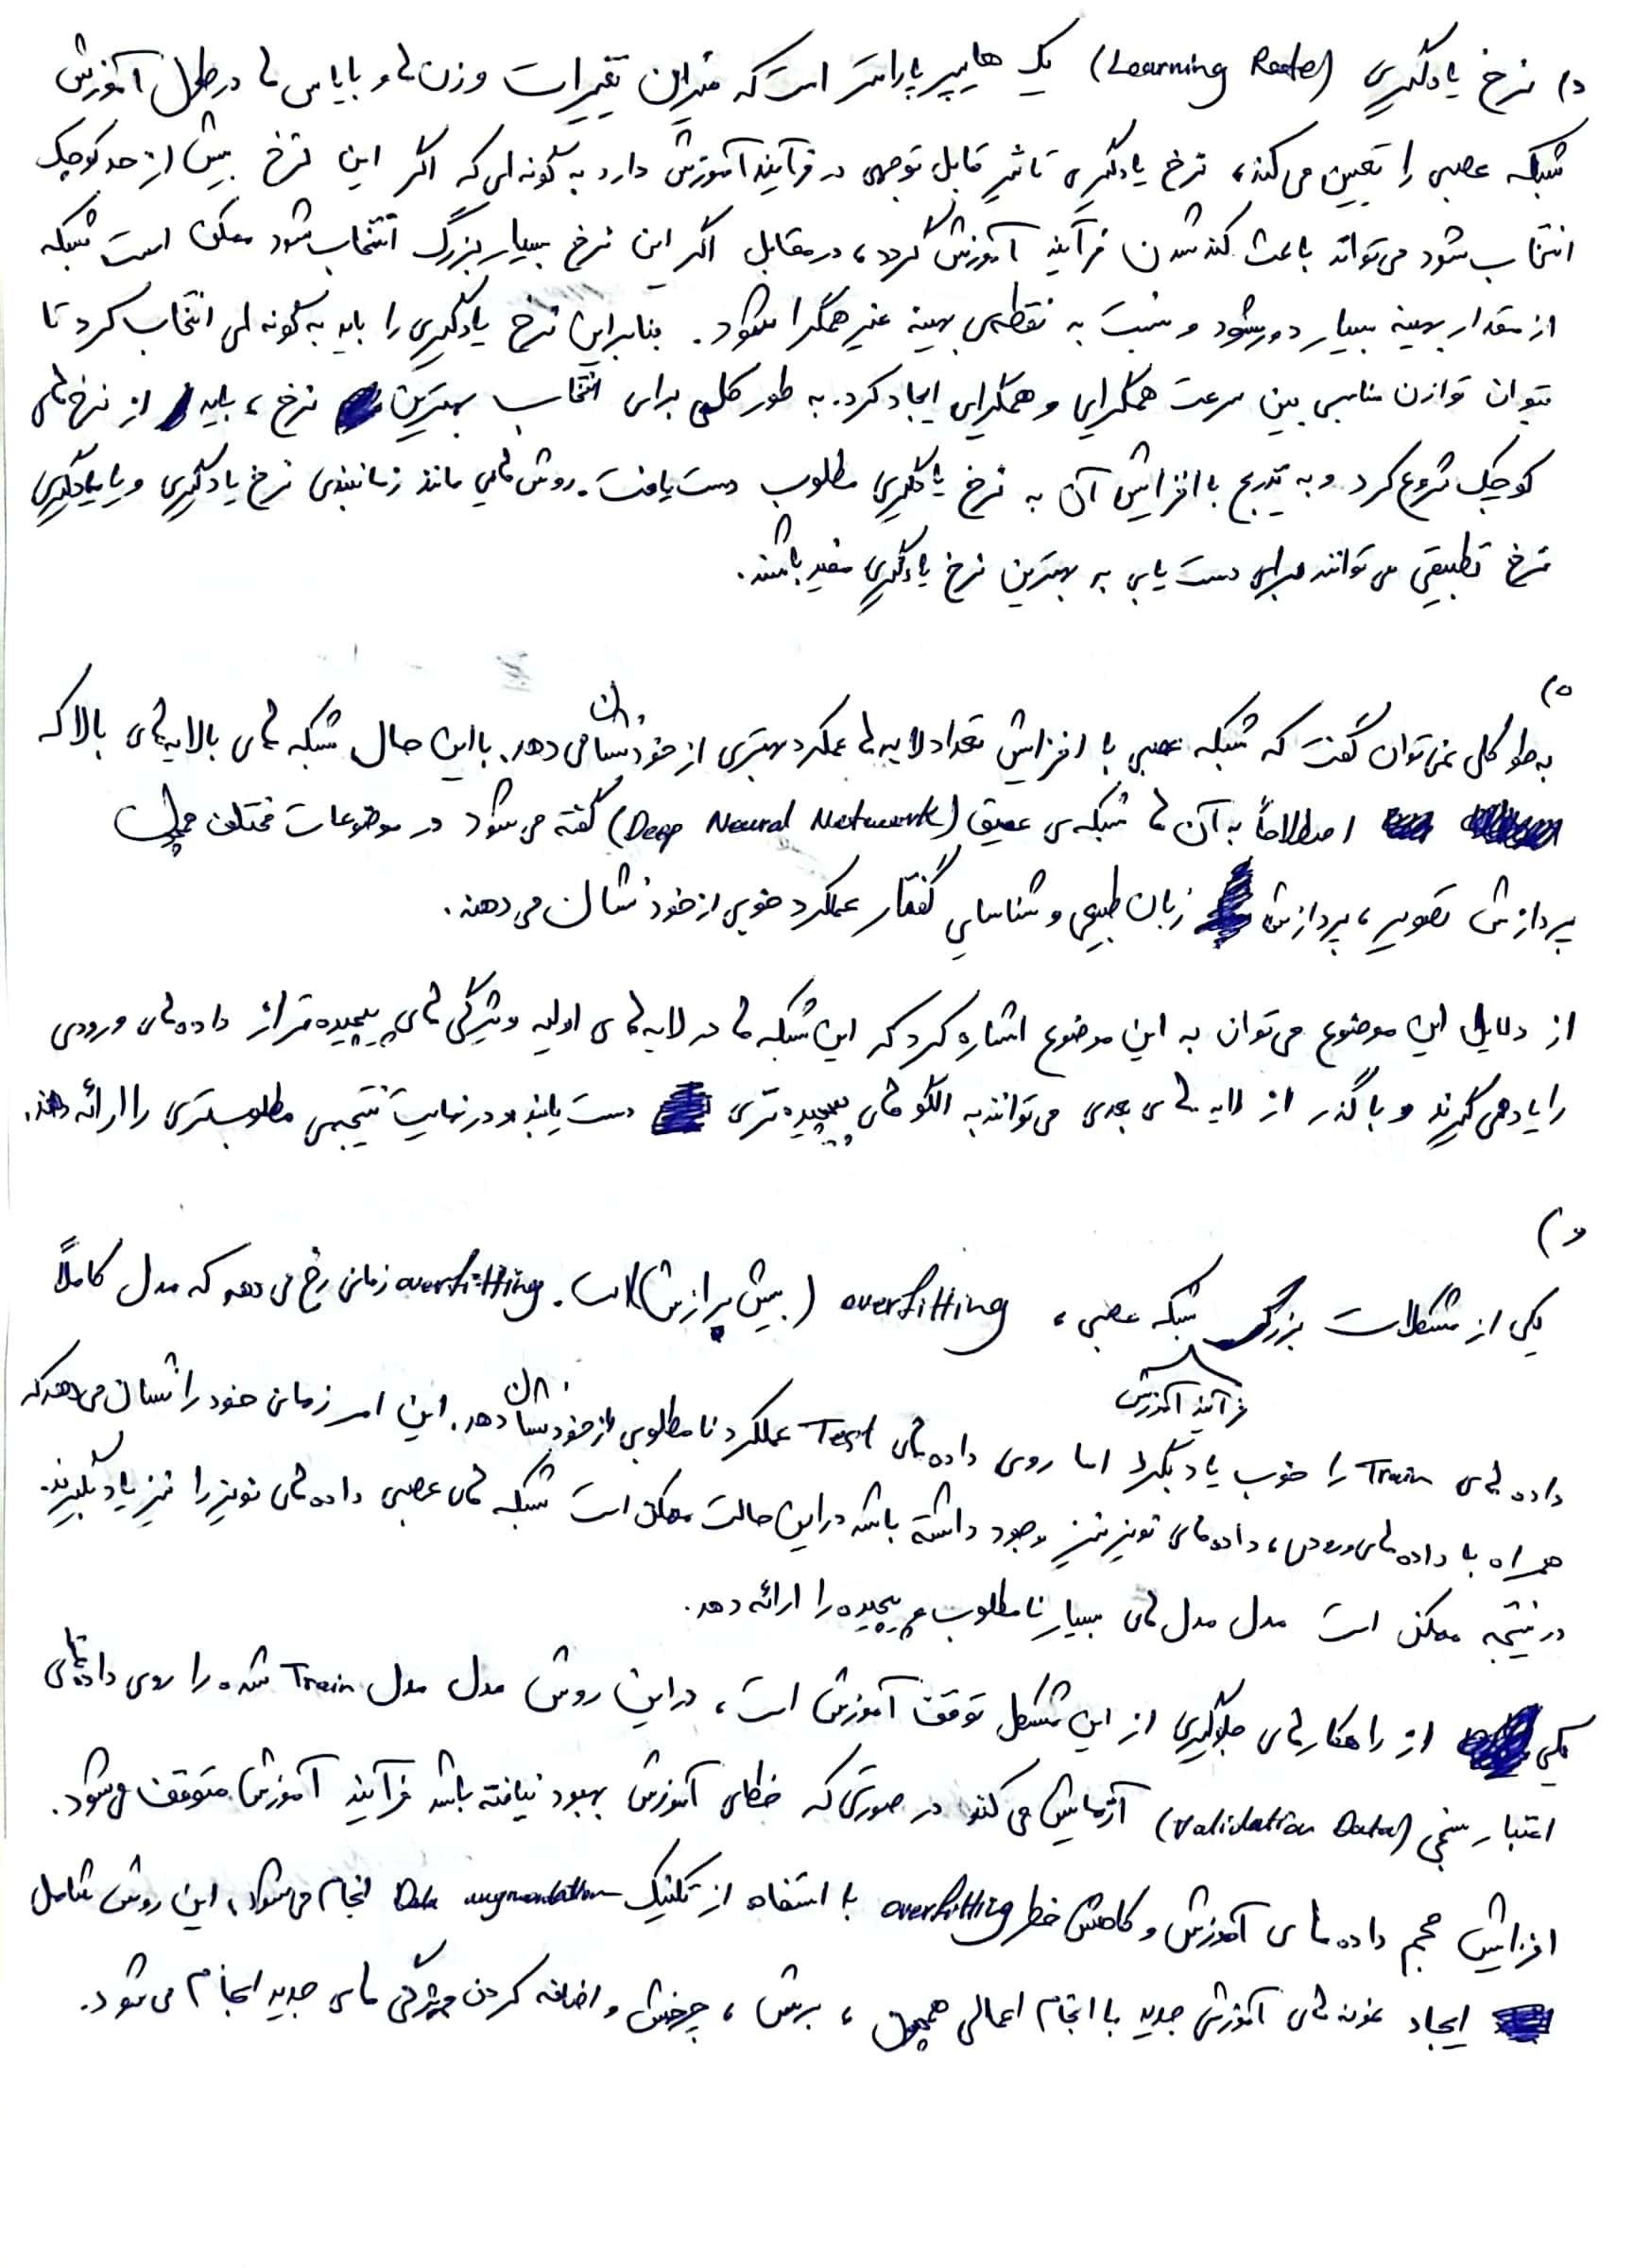 د) نرخ یادگیری (Learning Rate) یک هایپر پارامتر است که میزان تغییرات وزن ها و بایاس ها در طول آموزش
شبکه عصبی را تعیین می کند، نرخ یادگیری تاثیر قابل توجهی در فرآیند آموزش دارد به گونه ای که اگر این نرخ بیش از حد کوچک
انتخاب شود می تواند باعث کند شدن فرآیند آموزش گردد، در مقابل اگر این نرخ بسیار بزرگ انتخاب شود ممکن است شبکه
از مقدار بهینه بسیار دور شود و نسبت به نقطه ی بهینه غیر همگرا شود. بنابراین نرخ یادگیری را باید به گونه ای انتخاب کرد تا
بتوان توازن مناسبی بین سرعت همگرایی و همگرایی ایجاد کرد. به طور کلی برای انتخاب بهترین نرخ، باید از نرخ های
کوچک شروع کرد و به تدریج با افزایش آن به نرخ یادگیری مطلوب دست یافت. روش هایی مانند زمانبندی نرخ یادگیری و یا یادگیری
نرخ تطبیقی می توانند برای دست یابی به بهترین نرخ یادگیری مفید باشند.
ه)
به طور کلی نمی توان گفت که شبکه عصبی با افزایش تعداد لایه ها عملکرد بهتری از خود نشان می دهد. با این حال شبکه های با لایه های بالا که
اصطلاحاً به آن ها شبکه ی عمیق (Deep Neural Network) گفته می شود در موضوعات مختلف همچون
پردازش تصویر، پردازش زبان طبیعی و شناسایی گفتار عملکرد خوبی از خود نشان می دهند.
از دلایل این موضوع می توان به این موضوع اشاره کرد که این شبکه ها در لایه های اولیه ویژگی های پیچیده تر از داده های ورودی
را یاد می گیرند و با گذر از لایه های بعدی می توانند به الگو های پیچیده تری دست یابند و در نهایت نتیجه ی مطلوبتری را ارائه دهند.
و)
یکی از مشکلات بزرگ فرآیند آموزش شبکه عصبی، overfitting (بیش برازش) است. overfitting زمانی رخ می دهد که مدل کاملاً
داده های Train را خوب یاد بگیرد اما روی داده های Test عملکرد نامطلوبی از خود نشان دهد. این امر زمانی خود را نشان می دهد که
همراه با داده های ورودی، داده های نویز نیز وجود داشته باشد در این حالت ممکن است شبکه های عصبی داده های نویز را نیز یاد بگیرند.
در نتیجه ممکن است مدل مدل های بسیار نامطلوب و پیچیده را ارائه دهد.
یکی از راهکارهای جلوگیری از این مشکل توقف آموزش است، در این روش مدل مدل Train شده را روی داده های
اعتبار سنجی (Validation Data) آزمایش می کند در صورتی که خطای آموزش بهبود نیافته باشد فرآیند آموزش متوقف می شود.
افزایش حجم داده های آموزش و کاهش خطر overfitting با استفاده از تکنیک Data augmentation انجام می شود، این روش شامل
ایجاد نمونه های آموزشی جدید با انجام اعمالی همچون، برش، چرخش و اضافه کردن ویژگی های جدید انجام می شود.